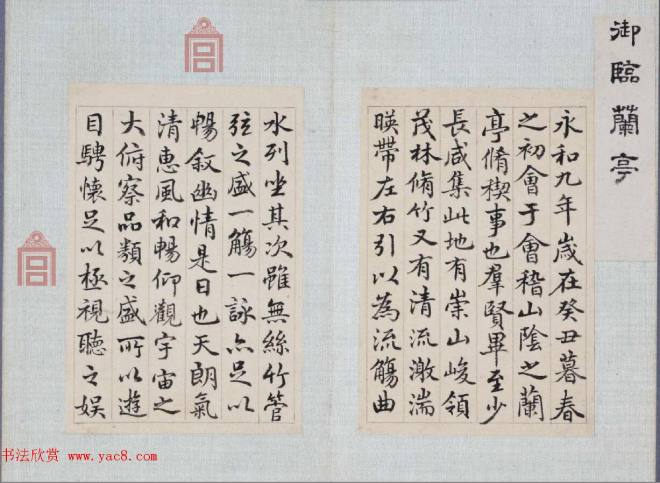 御臨蘭亭
永和九年歲在癸丑暮春
之初會于會稽山陰之蘭
亭脩稧事也羣賢畢至少
長咸集此地有崇山峻領
茂林脩竹又有清流激湍
暎帶左右引以為流觴曲
水列坐其次雖無絲竹管
弦之盛一觴一詠亦足以
暢敘幽情是日也天朗氣
清惠風和暢仰觀宇宙之
大俯察品類之盛所以遊
目騁懷足以極視聽之娛
书法欣赏 www.yac8.com